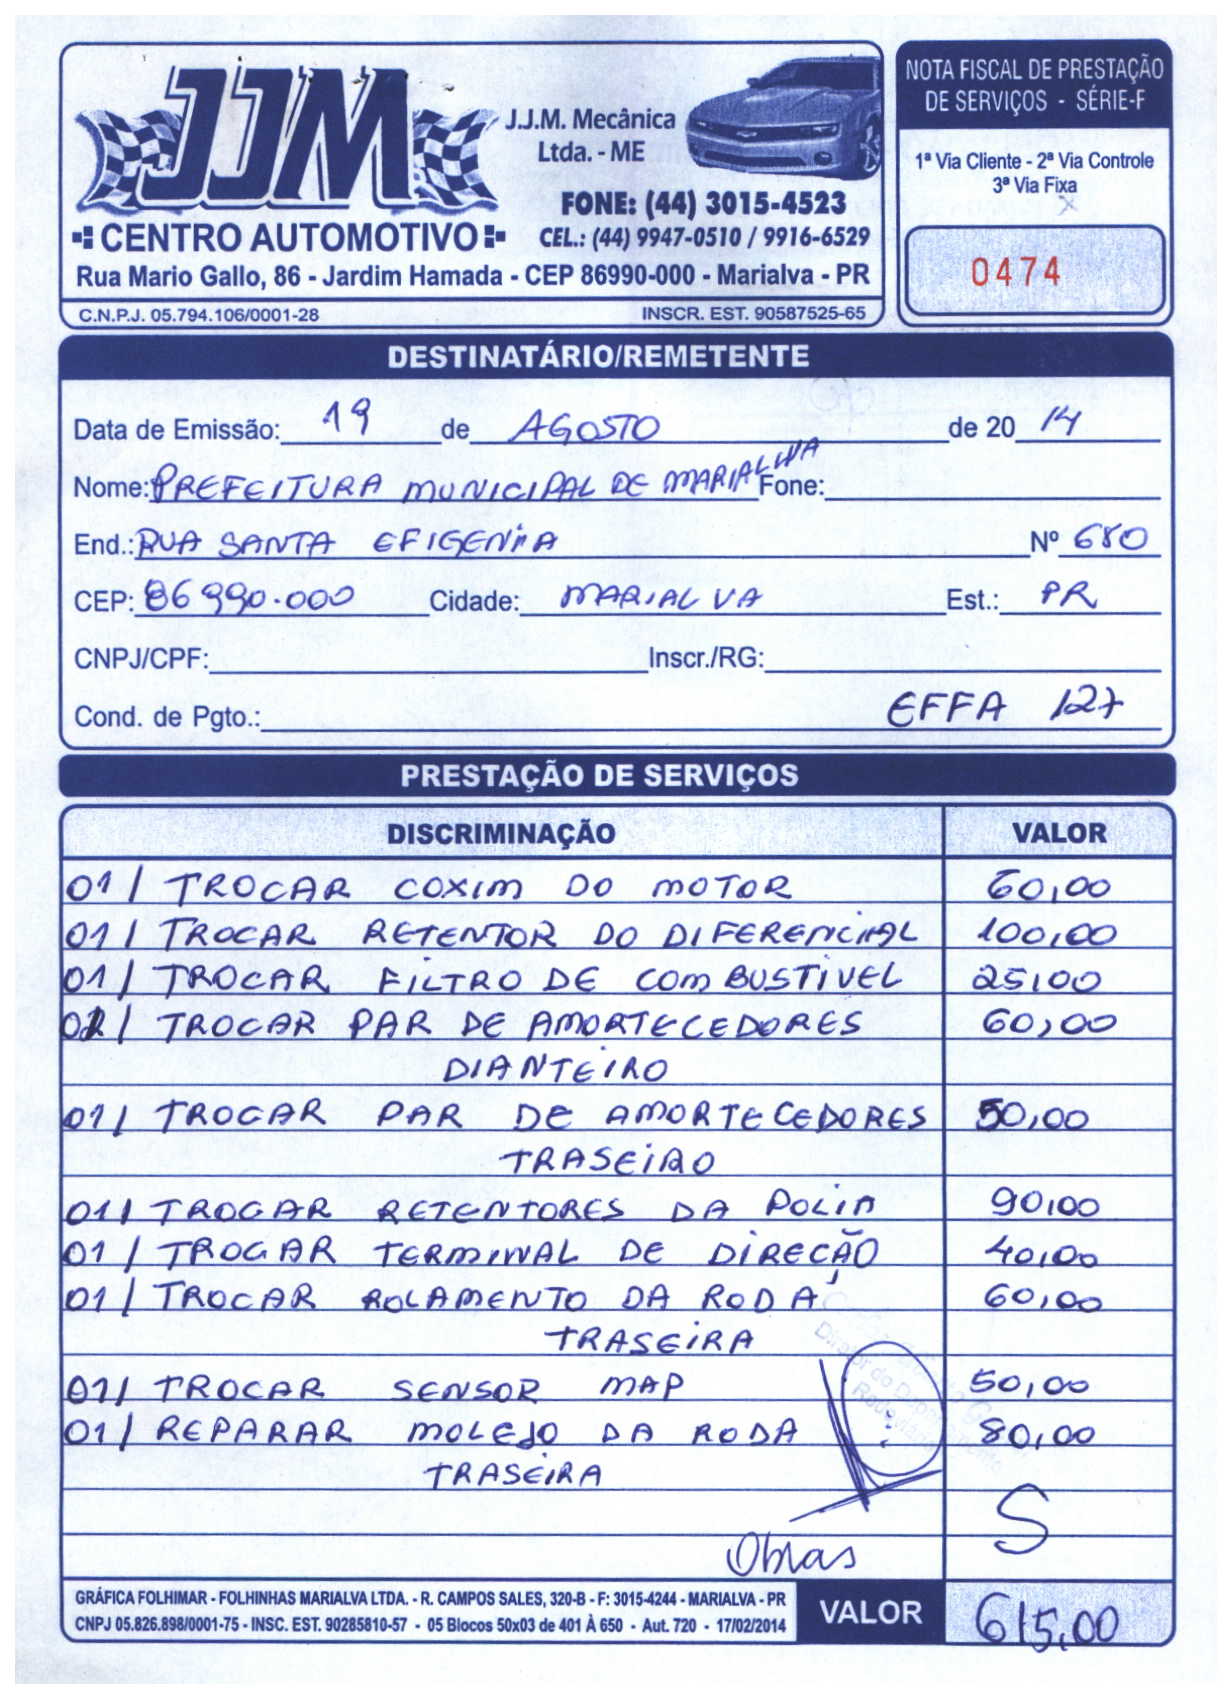 JJM
CENTRO AUTOMOTIVO
J.J.M. Mecânica
Ltda. - ME
FONE: (44) 3015-4523
CEL.: (44) 9947-0510 / 9916-6529
Rua Mario Gallo, 86 - Jardim Hamada - CEP 86990-000 - Marialva - PR
C.N.P.J. 05.794.106/0001-28 INSCR. EST. 90587525-65
NOTA FISCAL DE PRESTAÇÃO
DE SERVIÇOS - SÉRIE-F
1ª Via Cliente - 2ª Via Controle
3ª Via Fixa
0474
DESTINATÁRIO/REMETENTE
Data de Emissão: 19 de AGOSTO de 20 14
Nome: PREFEITURA MUNICIPAL DE MARIALVA Fone:
End.: RUA SANTA EFIGENIA Nº 680
CEP: 86990.000 Cidade: MARIALVA Est.: PR
CNPJ/CPF: Inscr./RG:
Cond. de Pgto.: EFFA 127
PRESTAÇÃO DE SERVIÇOS
DISCRIMINAÇÃO VALOR
01/ TROCAR COXIM DO MOTOR 60,00
01/ TROCAR RETENTOR DO DIFERENCIAL 100,00
01/ TROCAR FILTRO DE COMBUSTIVEL 25,00
01/ TROCAR PAR DE AMORTECEDORES 60,00
DIANTEIRO
01/ TROCAR PAR DE AMORTECEDORES 50,00
TRASEIRO
01/ TROCAR RETENTORES DA POLIA 90,00
01/ TROCAR TERMINAL DE DIREÇÃO 40,00
01/ TROCAR ROLAMENTO DA RODA 60,00
TRASEIRA
01/ TROCAR SENSOR MAP 50,00
01/ REPARAR MOLEJO DA RODA 80,00
TRASEIRA
Diretor do Departamento
Rodoviário
S
Obras
GRÁFICA FOLHIMAR - FOLHINHAS MARIALVA LTDA. - R. CAMPOS SALES, 320-B - F: 3015-4244 - MARIALVA - PR
CNPJ 05.826.898/0001-75 - INSC. EST. 90285810-57 - 05 Blocos 50x03 de 401 À 650 - Aut. 720 - 17/02/2014
VALOR 615,00